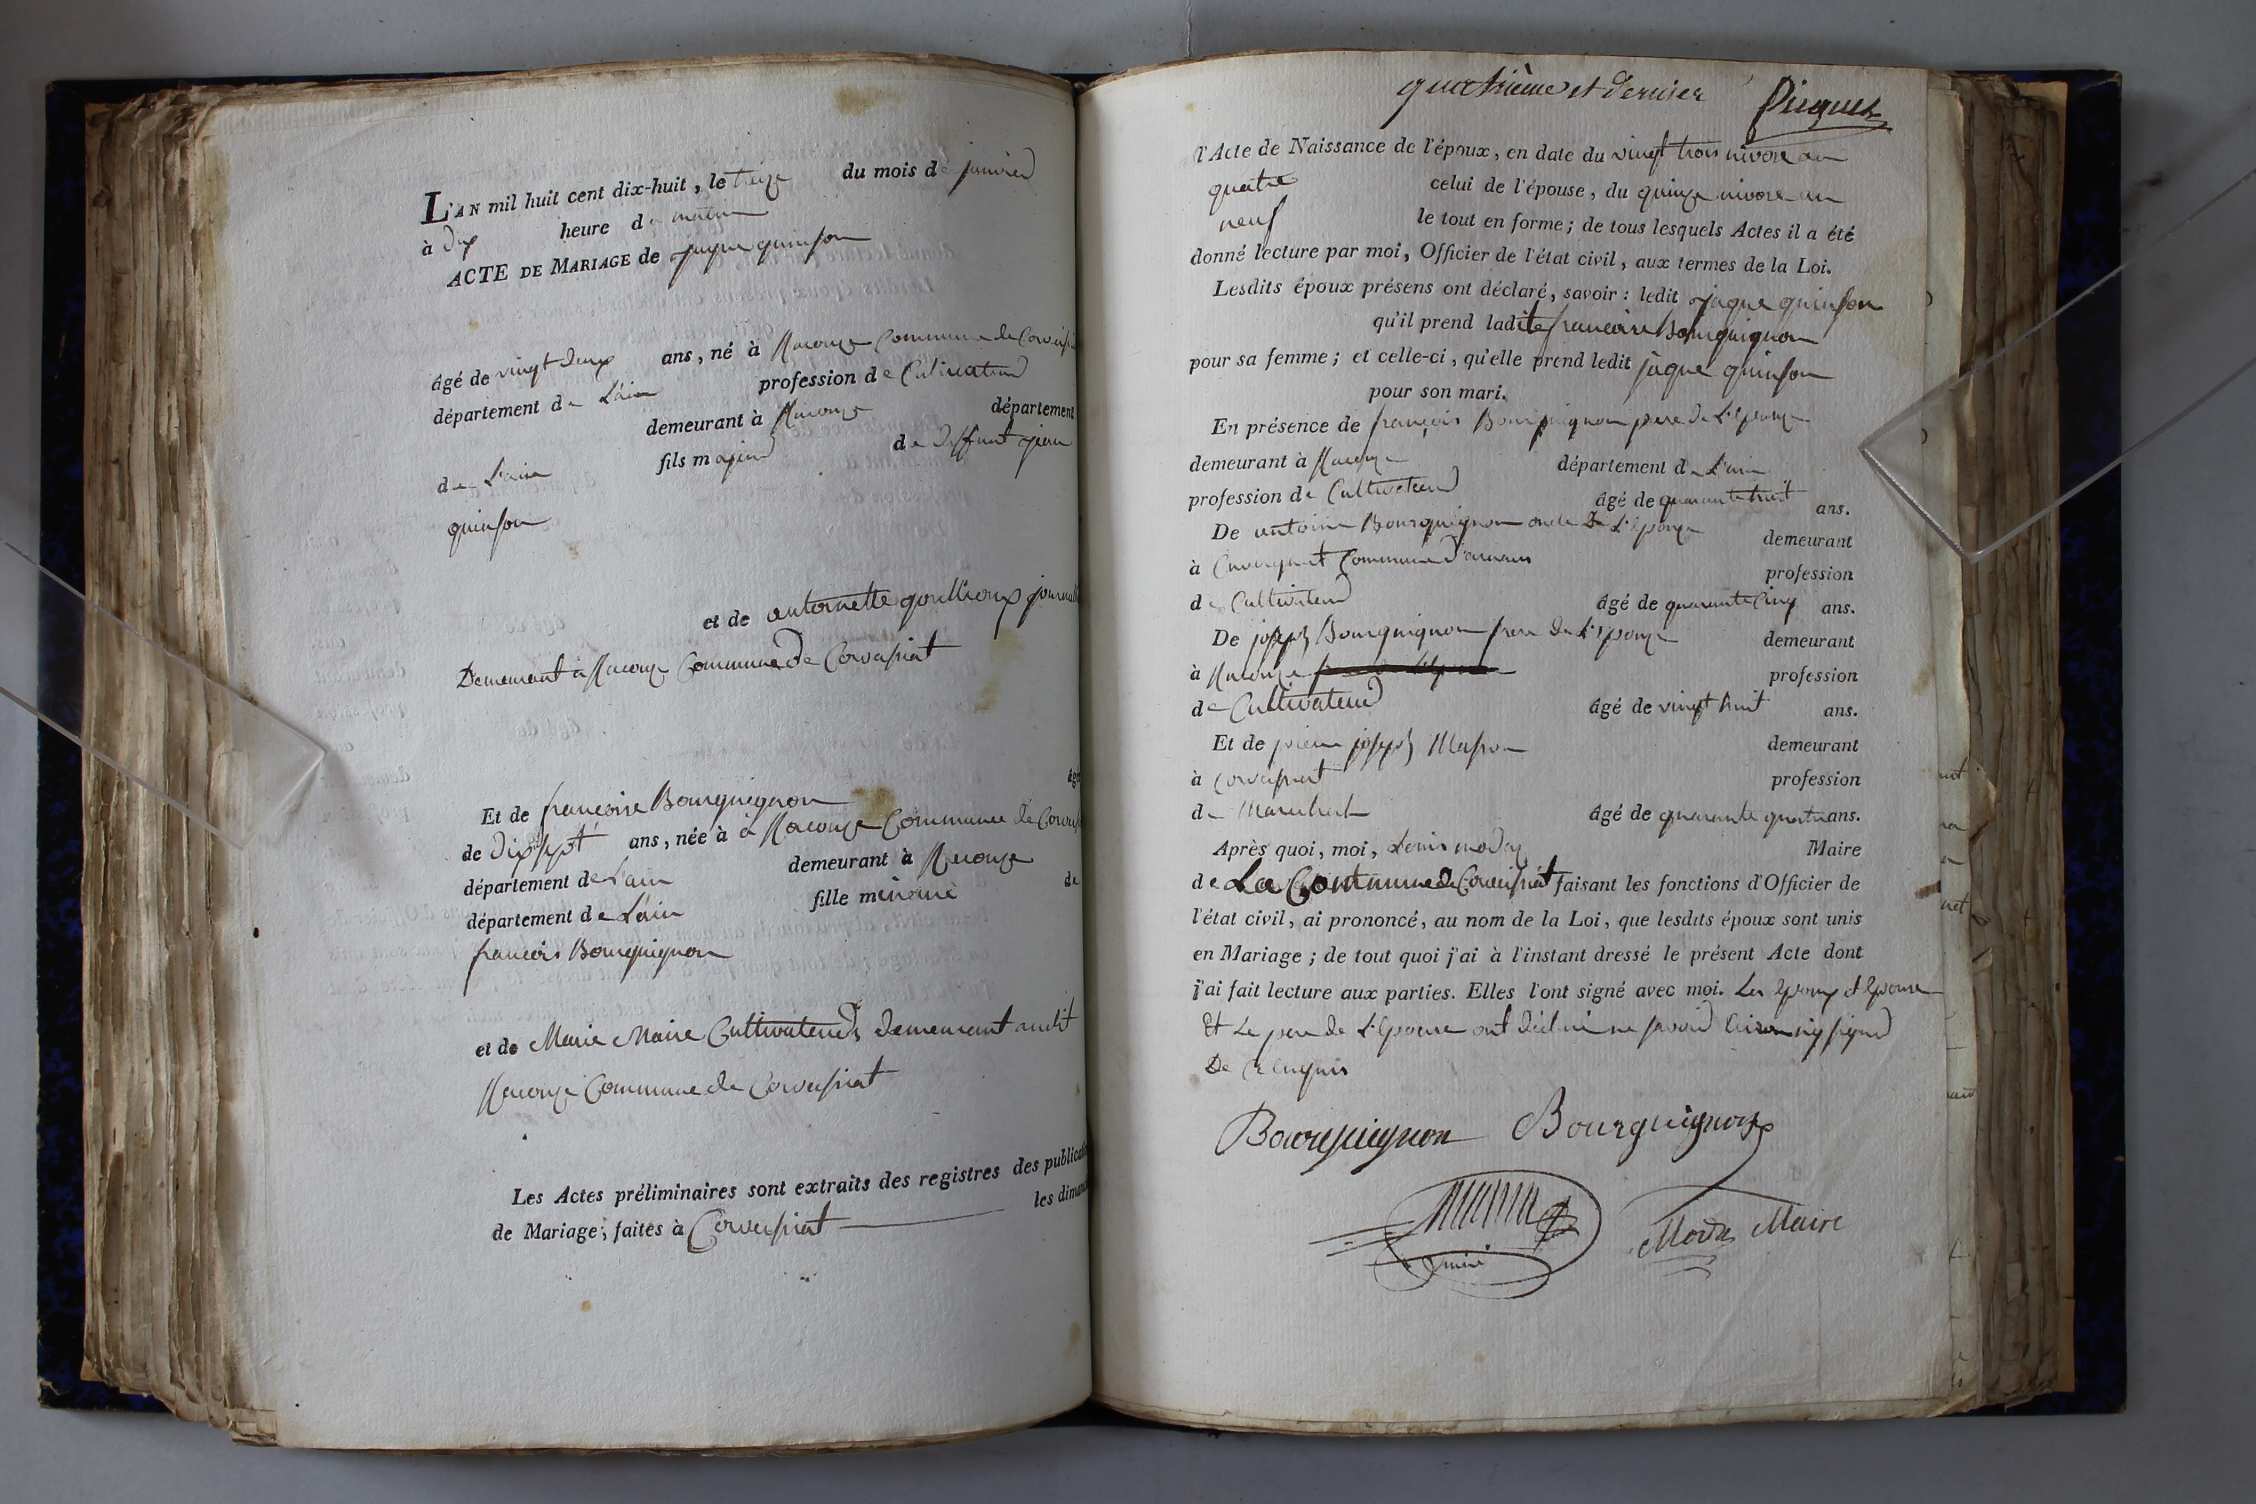 L'AN mil huit cent dix-huit, le treize du mois de janvier
à dix heure du matin
ACTE DE MARIAGE de jaque quinson
âgé de vingt deux ans, né à Racouze Commune de Corveissiat
département de L'ain profession de Cultivateur
demeurant à Racouze département
de L'ain fils majeur de deffunt jean
quinson
et de antoinette goullioux
Demeurant à Racouze Commune de Corveissiat
Et de francoise Bourguignon âgé
de dix sept ans, née à à Racouze Commune de Corveissiat
département de L'ain demeurant à Racouze
département de L'ain fille mineure de
francois Bourguignon
et de Marie Maire Cultivateurs demeurant audit
Racouze Commune de Corveissiat
Les Actes préliminaires sont extraits des registres des publications
de Mariage, faites à Corveissiat les dimanches
quatrième et dernier Picquet
l'Acte de Naissance de l'époux, en date du vingt trois nivose an
quatre celui de l'épouse, du quinze nivose an
neuf le tout en forme; de tous lesquels Actes il a été
donné lecture par moi, Officier de l'état civil, aux termes de la Loi.
Lesdits époux présens ont déclaré, savoir: ledit jaque quinson
qu'il prend ladite francoise Bourguignon
pour sa femme; et celle-ci, qu'elle prend ledit jaque quinson
pour son mari.
En présence de françois Bourguignon pere de L'Epouze
demeurant à Racouze département de L'ain
profession de Cultivateur âgé de quarante huit ans.
De antoine Bourguignon oncle De L'Epouze demeurant
à Commune D'arnans profession
de Cultivateur âgé de quarante Cinq ans.
De joseph Bourguignon frere De L'Epouze demeurant
à Racouze profession
de Cultivateur âgé de vingt huit ans.
Et de pierre joseph Masson demeurant
à Corveissiat profession
de Marechal âgé de quarante quatre ans.
Après quoi, moi, Louis moday Maire
de La Commune de Corveissiat faisant les fonctions d'Officier de
l'état civil, ai prononcé, au nom de la Loi, que lesdits époux sont unis
en Mariage; de tout quoi j'ai à l'instant dressé le présent Acte dont
j'ai fait lecture aux parties. Elles l'ont signé avec moi. Les Epoux et Epouse
Et Le pere de L'Epouse ont déclaré ne savoir Ecrire ny signer
De Ce Enquis
Bourguignon Bourguignon
Maire